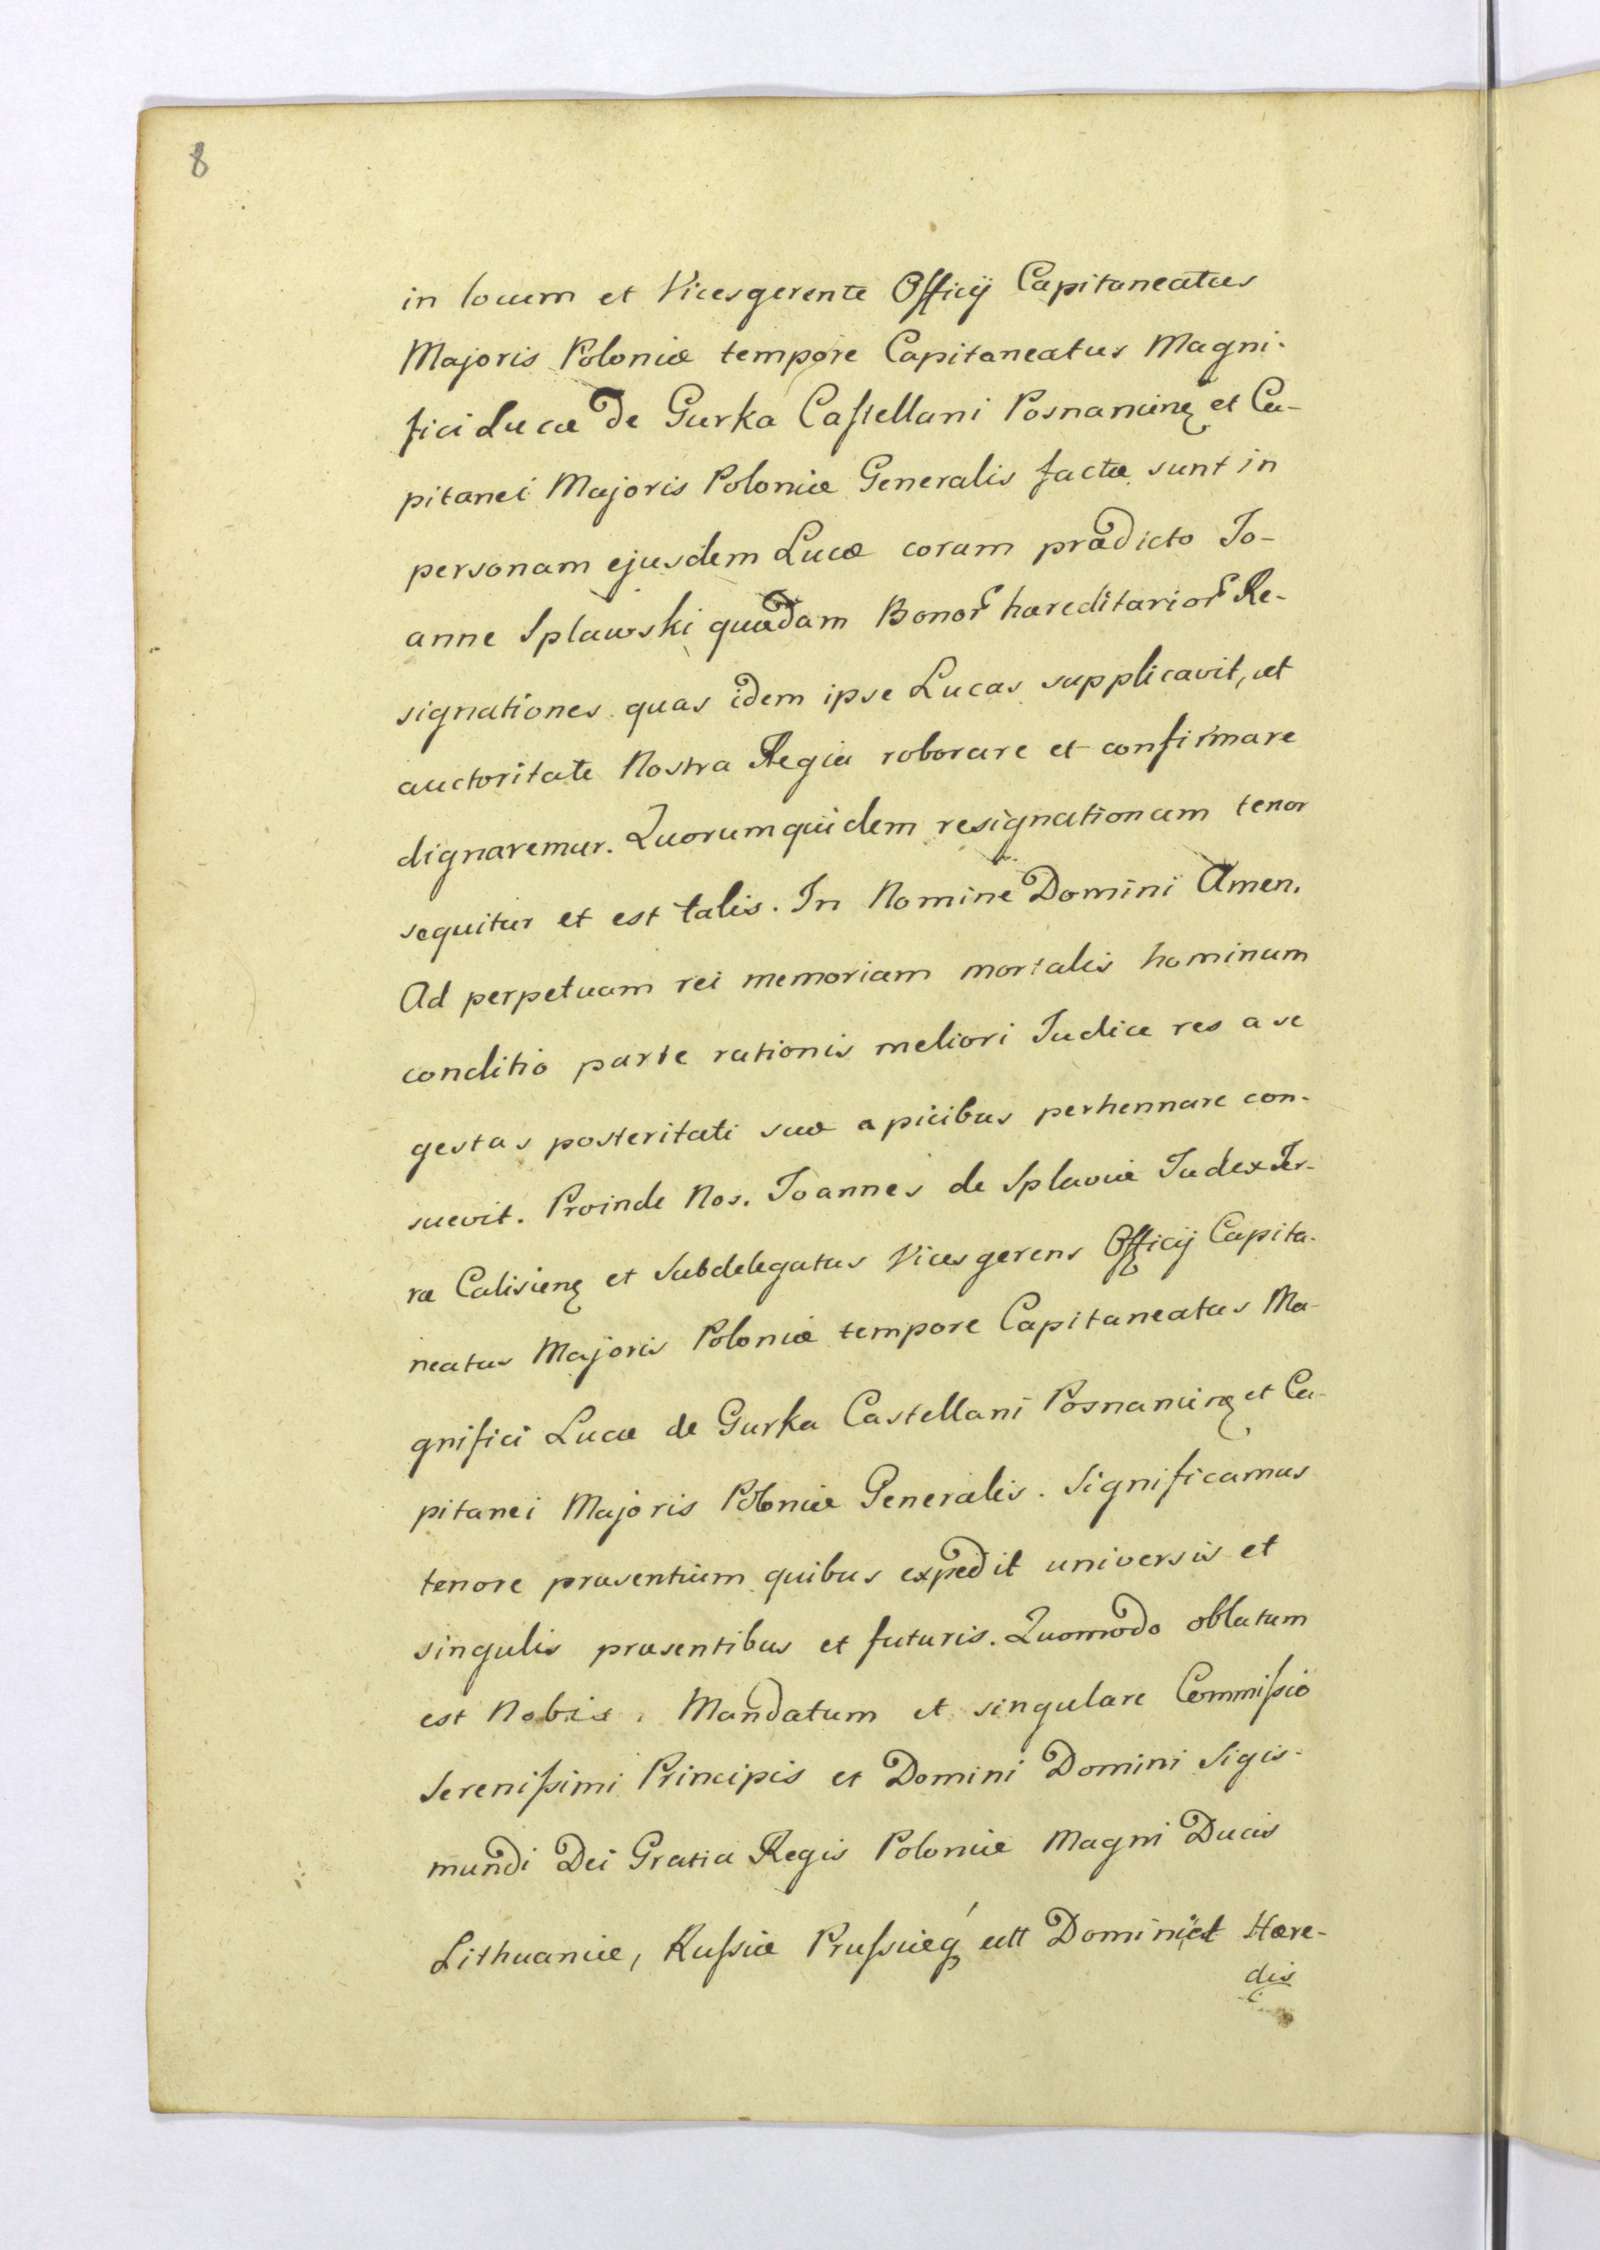 8
in locum et Vicesgerente Officÿ Capitaneatus
Majoris Poloniæ tempore Capitaneatus Magni-
fici Lucæ de Gurka Caſtellani Posnanienꝫ et Ca-
pitanei Majoris Poloniæ Generalis factæ sunt in
personam ejusdem Lucæ coram prædicto Jo-
anne Splawski quædam Bonorꝫ hæreditariorꝫ Re-
signationes quas idem ipse Lucas supplicavit, ut
auctoritate Nostra Regia roborare et confirmare
dignaremur. Quorum quidem resignationum tenor
sequitur et est talis. In Nomine Domini Amen.
Ad perpetuam rei memoriam mortalis hominum
conditio parte rationis meliori Judice res a se
gestas posteritati suæ apicibus perhennare con-
suevit. Proinde Nos. Joannes de Splavie Judex Ter-
ræ Calisienꝫ et Subdelegatus Vicesgerens Officÿ Capita-
neatus Majoris Poloniæ tempore Capitaneatus Ma-
gnifici Lucæ de Gurka Castellani Posnanienꝫ et Ca-
pitanei Majoris Poloniæ Generalis. Significamus
tenore præsentium quibus expedit universis et
singulis præsentibus et futuris. Quomodo oblatum
est Nobis. Mandatum et singulare Commiſsio
Sereniſsimi Principis et Domini Domini Sigis-
mundi Dei Gratia Regis Poloniæ Magni Ducis
Lithuaniæ, Ruſsiæ Pruſsiæq́ ett Domini et Hære-
dis